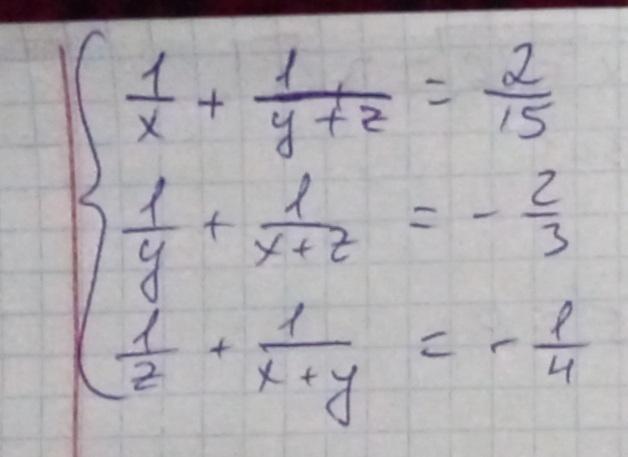 1/x + 1/(y+z) = 2/15
1/y + 1/(x+z) = -2/3
1/z + 1/(x+y) = -1/4